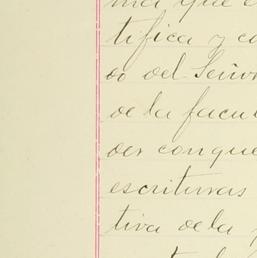 ma que e
tifica y co
do del Señor
de la facul
der con que
escrituras
tiva de la